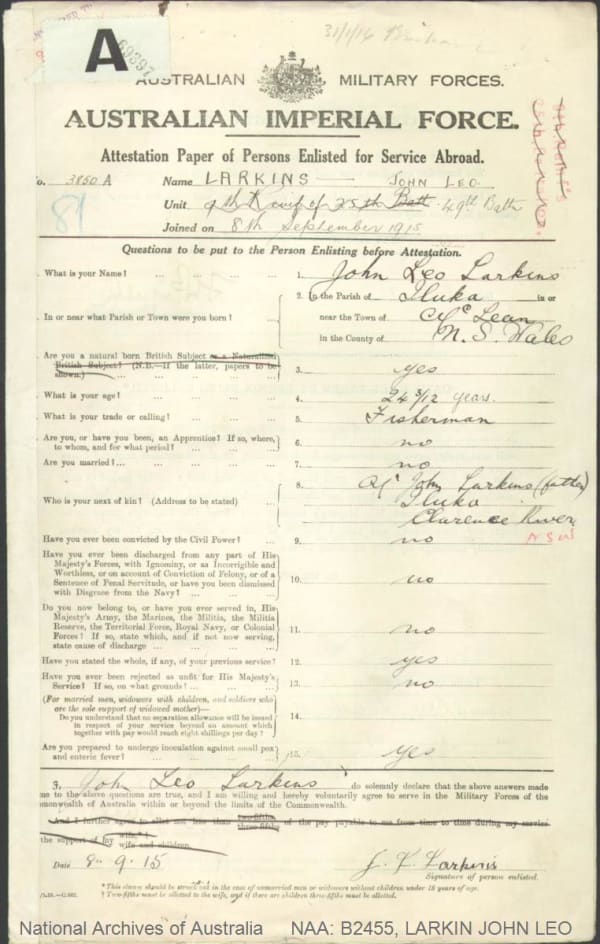 A
69397
31/1/16
AUSTRALIAN MILITARY FORCES.
AUSTRALIAN IMPERIAL FORCE.
Attestation Paper of Persons Enlisted for Service Abroad.
No. 3850 A Name LARKINS — JOHN LEO.
Unit 9th Reinf of 25th Batt 49th Battn
18
Joined on 8th September 1915
Questions to be put to the Person Enlisting before Attestation.
. What is your Name? ... ... ... ... 1. John Leo Larkins
. In or near what Parish or Town were you born? ... 2. In the Parish of Iluka in or
near the Town of McLean
in the County of N. S. Wales
. Are you a natural born British Subject or a Naturalized
British Subject? (N.B.—If the latter, papers to be
shown.) ... ... ... 3. yes
. What is your age? ... ... ... ... 4. 24 5/12 years.
. What is your trade or calling? ... ... ... 5. Fisherman
. Are you, or have you been, an Apprentice? If so, where,
to whom, and for what period? ... ... 6. no
. Are you married?... ... ... ... 7. no
. Who is your next of kin? (Address to be stated) ... 8. John Larkins (father)
Iluka
Clarence River
N S W
Have you ever been convicted by the Civil Power? ... 9. no
Have you ever been discharged from any part of His
Majesty's Forces, with Ignominy, or as Incorrigible and
Worthless, or on account of Conviction of Felony, or of a
Sentence of Penal Servitude, or have you been dismissed
with Disgrace from the Navy? ... ... 10. no
Do you now belong to, or have you ever served in, His
Majesty's Army, the Marines, the Militia, the Militia
Reserve, the Territorial Force, Royal Navy, or Colonial
Forces? If so, state which, and if not now serving,
state cause of discharge ... ... ... 11. no
Have you stated the whole, if any, of your previous service? 12. yes
Have you ever been rejected as unfit for His Majesty's
Service? If so, on what grounds? ... ... 13. no
(For married men, widowers with children, and soldiers who
are the sole support of widowed mother)—
Do you understand that no separation allowance will be issued
in respect of your service beyond an amount which
together with pay would reach eight shillings per day? 14.
Are you prepared to undergo inoculation against small pox
and enteric fever? ... ... ... 15. Yes
I, John Leo Larkins do solemnly declare that the above answers made
me to the above questions are true, and I am willing and hereby voluntarily agree to serve in the Military Forces of the
mmonwealth of Australia within or beyond the limits of the Commonwealth.
And I further agree to allot not less than two-fifths three-fifths of the pay payable to me from time to time during my service
the support of my wife.* wife and children.
Date 8. 9. 15 J. L. Larkins
Signature of person enlisted.
* This clause should be struck out in the case of unmarried men or widowers without children under 18 years of age.
† Two-fifths must be allotted to the wife, and if there are children three-fifths must be allotted.
National Archives of Australia NAA: B2455, LARKIN JOHN LEO